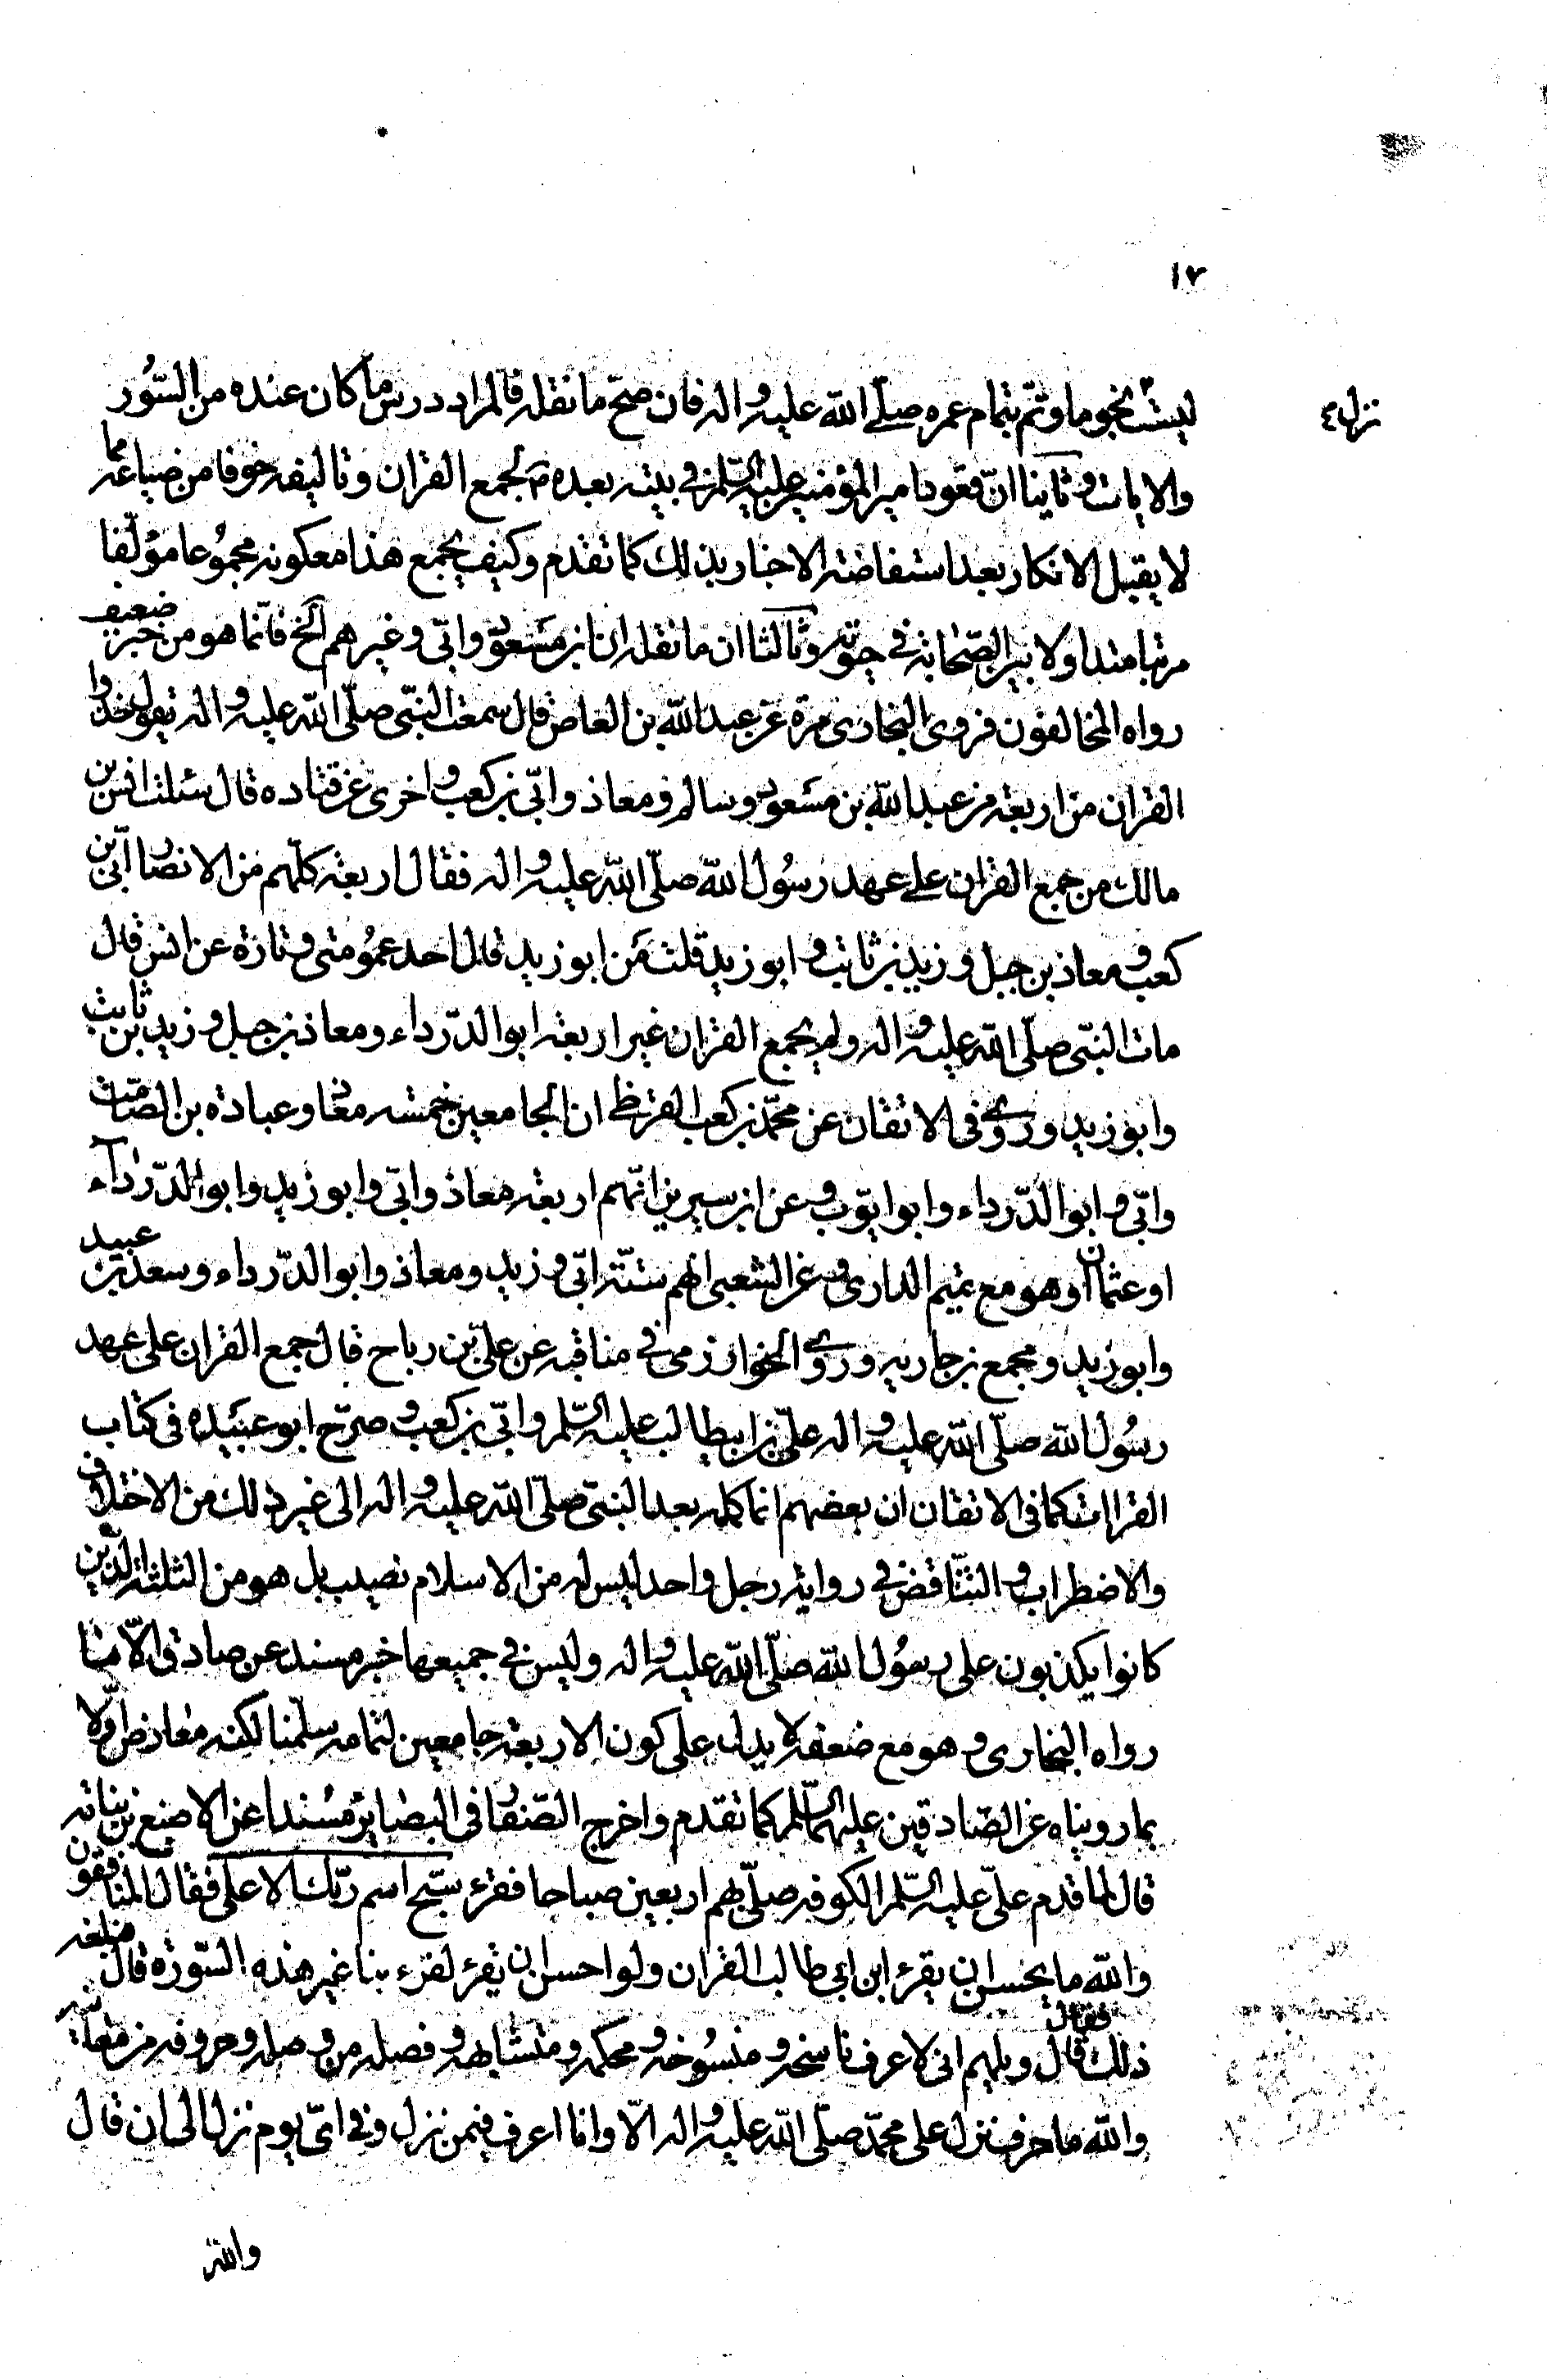 ١٧
نزل ع
نجوما وتم بتمام عمره صلّى الله عليه واله فان صحّ ما نقله فالمراد درس ما كان عنده من السّور
والايات وثانيا انّ قعود امير المؤمنين عليه السّلم في بيته بعده لجمع القران وتاليفه خوفا من ضياعه مما
لا يقبل الانكار بعد استفاضة الاخبار بذلك كما تقدم وكيف يجمع هذا مع كونه مجموعا مؤلّفا
مرتبا متداولا بين الصّحابة في حيوته وثالثا ان ما نقله ان ابن مسعود وابىّ وغيرهم الخ فانّما هو من خبر ضعيف
رواه المخالفون فروى البخارى مرة عن عبد الله بن العاص قال سمعت النبّى صلّى الله عليه واله يقول خذوا
القران من اربعة من عبد الله بن مسعود وسالم ومعاذ وابىّ بن كعب واخرى عن قتاده قال سئلت انس بن
مالك من جمع القران على عهد رسول الله صلّى الله عليه واله فقال اربعة كلّهم من الانصار ابىّ بن
كعب ومعاذ بن جبل وزيد بن ثابت وابو زيد قلت من ابو زيد قال احد عمومتى وتارة عن انس قال
مات النبّى صلّى الله عليه واله ولم يجمع القران غير اربعة ابو الدّرداء ومعاذ بن جبل وزيد بن ثابت
وابو زيد وروى في الاتقان عن محمّد بن كعب القرظى ان الجامعين خمسه معاذ وعبادة بن الصّامت
وابىّ وابو الدّرداء وابو ايوّب وعن ابن سيرين انّهم اربعة معاذ وابىّ وابو زيد وابو الدّرداء
او عثمان او هو مع تميم الدارى وعن الشعبى انهم ستّة ابىّ وزيد ومعاذ وابو الدّرداء وسعد بن عبيد
وابو زيد ومجمع بن جاريه وروى الخوارزمى في مناقبه عن علىّ بن رباح قال جمع القران على عهد
رسول الله صلّى الله عليه واله علىّ بن ابيطالب عليه السّلم وابىّ بن كعب وصرّح ابو عبيده فى كتاب
القراات كما فى الاتقان ان بعضهم انما كمله بعد النبّى صلّى الله عليه واله الى غير ذلك من الاختلاف
والاضطراب والتنّاقض في رواية رجل واحد ليس له من الاسلام نصيب بل هو من الثلثة الّذين
كانوا يكذبون على رسول الله صلّى الله عليه واله وليس في جميعها خبر مسند عن صادق الاّ ما
رواه البخارى وهو مع ضعفه لا يدل على كون الاربعة جامعين لتمامه سلّمنا لكنه معارض اوّلا
بما رويناه عن الصّادقين عليهما السّلم كما تقدم واخرج الصّفار فى البصاير مسندا عن الاصبغ بن نباته
قال لما قدم علىّ عليه السّلم الكوفه صلّى بهم اربعين صباحا فقرء سبّح اسم ربّك الاعلى فقال المنافقون
والله ما يحسن ان يقرء ابن ابي طالب القران ولو احسن ان يقرء لقرء بنا غير هذه السّورة قال فبلغه
ذلك فقال ويلهم انى لاعرف ناسخه ومنسوخه ومحكمه ومتشابهه وفصله من وصله وحروفه من معانيه
والله ما حرف نزل على محمّد صلّى الله عليه واله الاّ وانا اعرف فيمن نزل وفي اىّ يوم نزل الى ان قال
والله